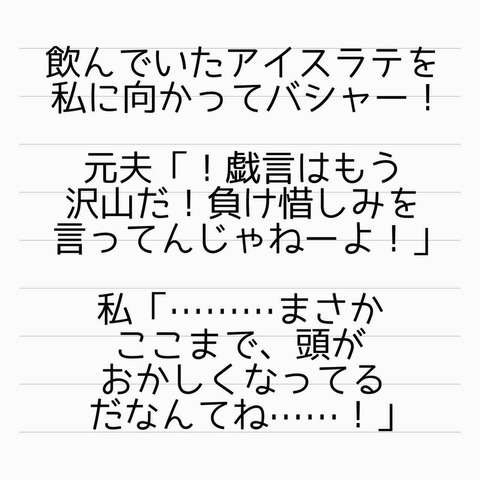 飲んでいたアイスラテを
私に向かってバシャー！
元夫「！戯言はもう
沢山だ！負け惜しみを
言ってんじゃねーよ！」
私「………まさか
ここまで、頭が
おかしくなってる
だなんてね……！」